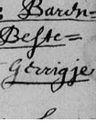 : Barðn=
Beste=
Gerrigje